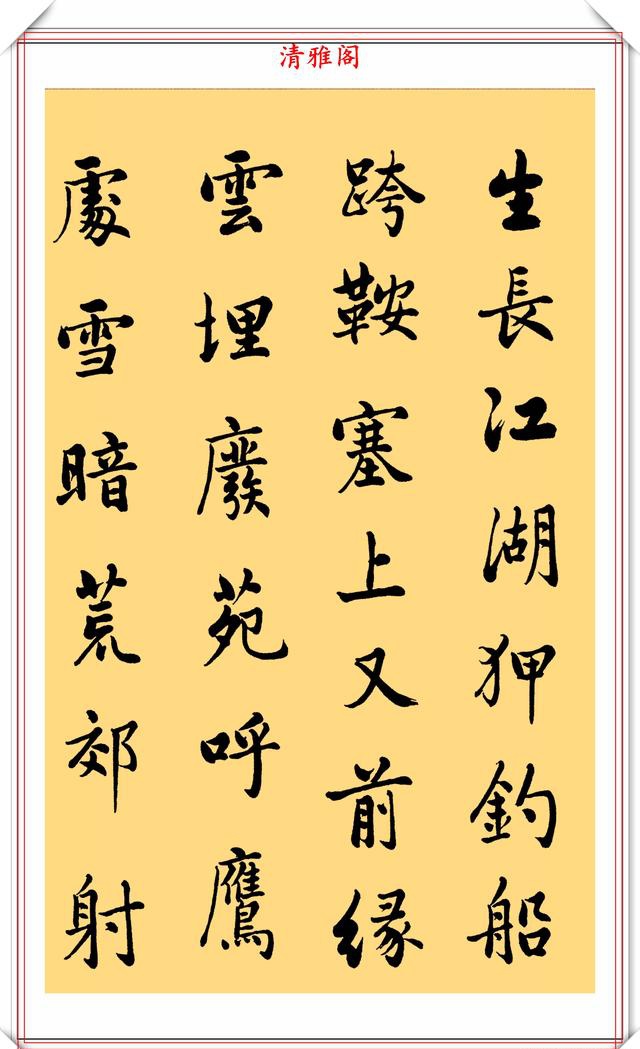 清雅阁
生長江湖狎釣船
跨鞍塞上又前緣
雲埋廢苑呼鷹
處雪暗荒郊射